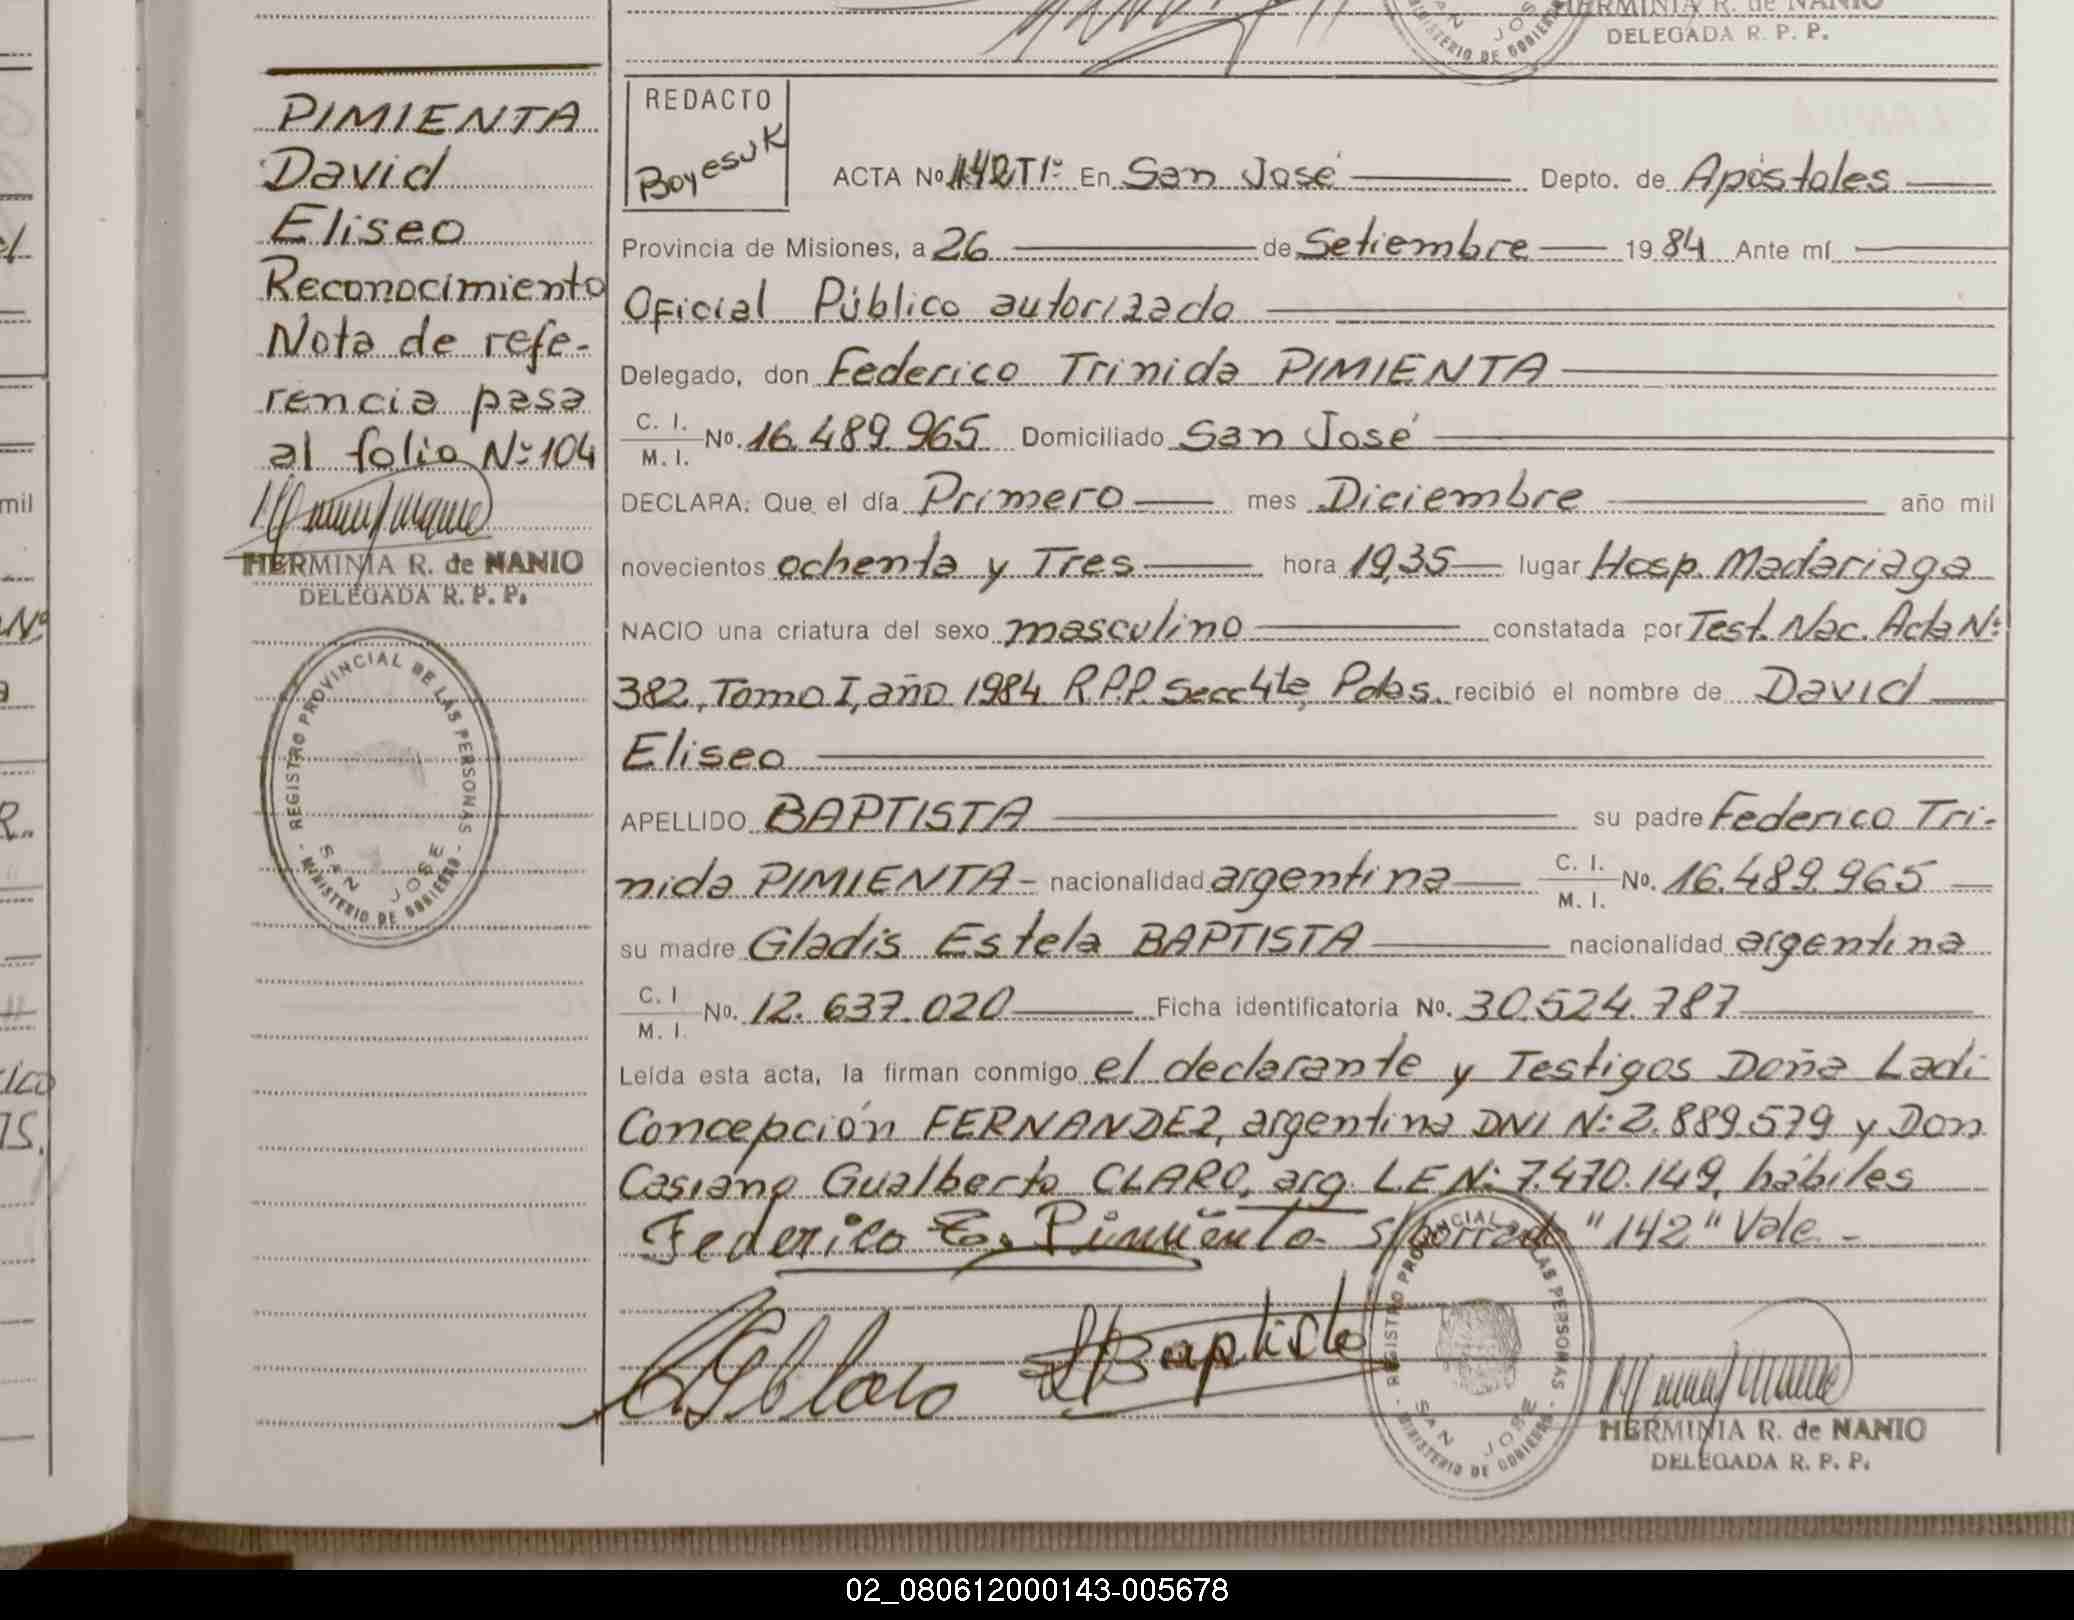 HERMINIA R. de NANIO
DELEGADA R. P. P.
PIMIENTA
David
Eliseo
Reconocimiento
Nota de refe-
rencia pasa
al folio Nº 104
HERMINIA R. de NANIO
DELEGADA R. P. P.
REGISTRO PROVINCIAL DE LAS PERSONAS
SAN JOSE
MINISTERIO DE GOBIERNO
REDACTO
Boyesuk
ACTA No. 142 T1º En San José Depto. de Apóstoles
Provincia de Misiones, a 26 de Setiembre 1984 Ante mí
Oficial Público autorizado
Delegado, don Federico Trinida PIMIENTA
C. I. M. I. No. 16.489.965 Domiciliado San José
DECLARA: Que el día Primero mes Diciembre año mil
novecientos ochenta y Tres hora 19,35 lugar Hosp. Madariaga
NACIO una criatura del sexo masculino constatada por Test. Nac. Acta Nº
382, Tomo I, año 1984 R.P.P. Secc 4ta, Pdas. recibió el nombre de David
Eliseo
APELLIDO BAPTISTA su padre Federico Tri-
nida PIMIENTA - nacionalidad argentina C. I. M. I. No. 16.489.965
su madre Gladis Estela BAPTISTA nacionalidad argentina
C. I M. I. No. 12.637.020 Ficha identificatoria No. 30.524.787
Leída esta acta, la firman conmigo el declarante y Testigos Doña Ladi
Concepción FERNANDEZ, argentina DNI Nº 2.889.579 y Don
Casiano Gualberto CLARO, arg. LE Nº 7.470.149, hábiles
Federico T. Pimienta S/borrado "142" Vale.-
Claro Baptista
REGISTRO PROVINCIAL DE LAS PERSONAS
SAN JOSE
MINISTERIO DE GOBIERNO
HERMINIA R. de NANIO
DELEGADA R. P. P.
02_080612000143-005678